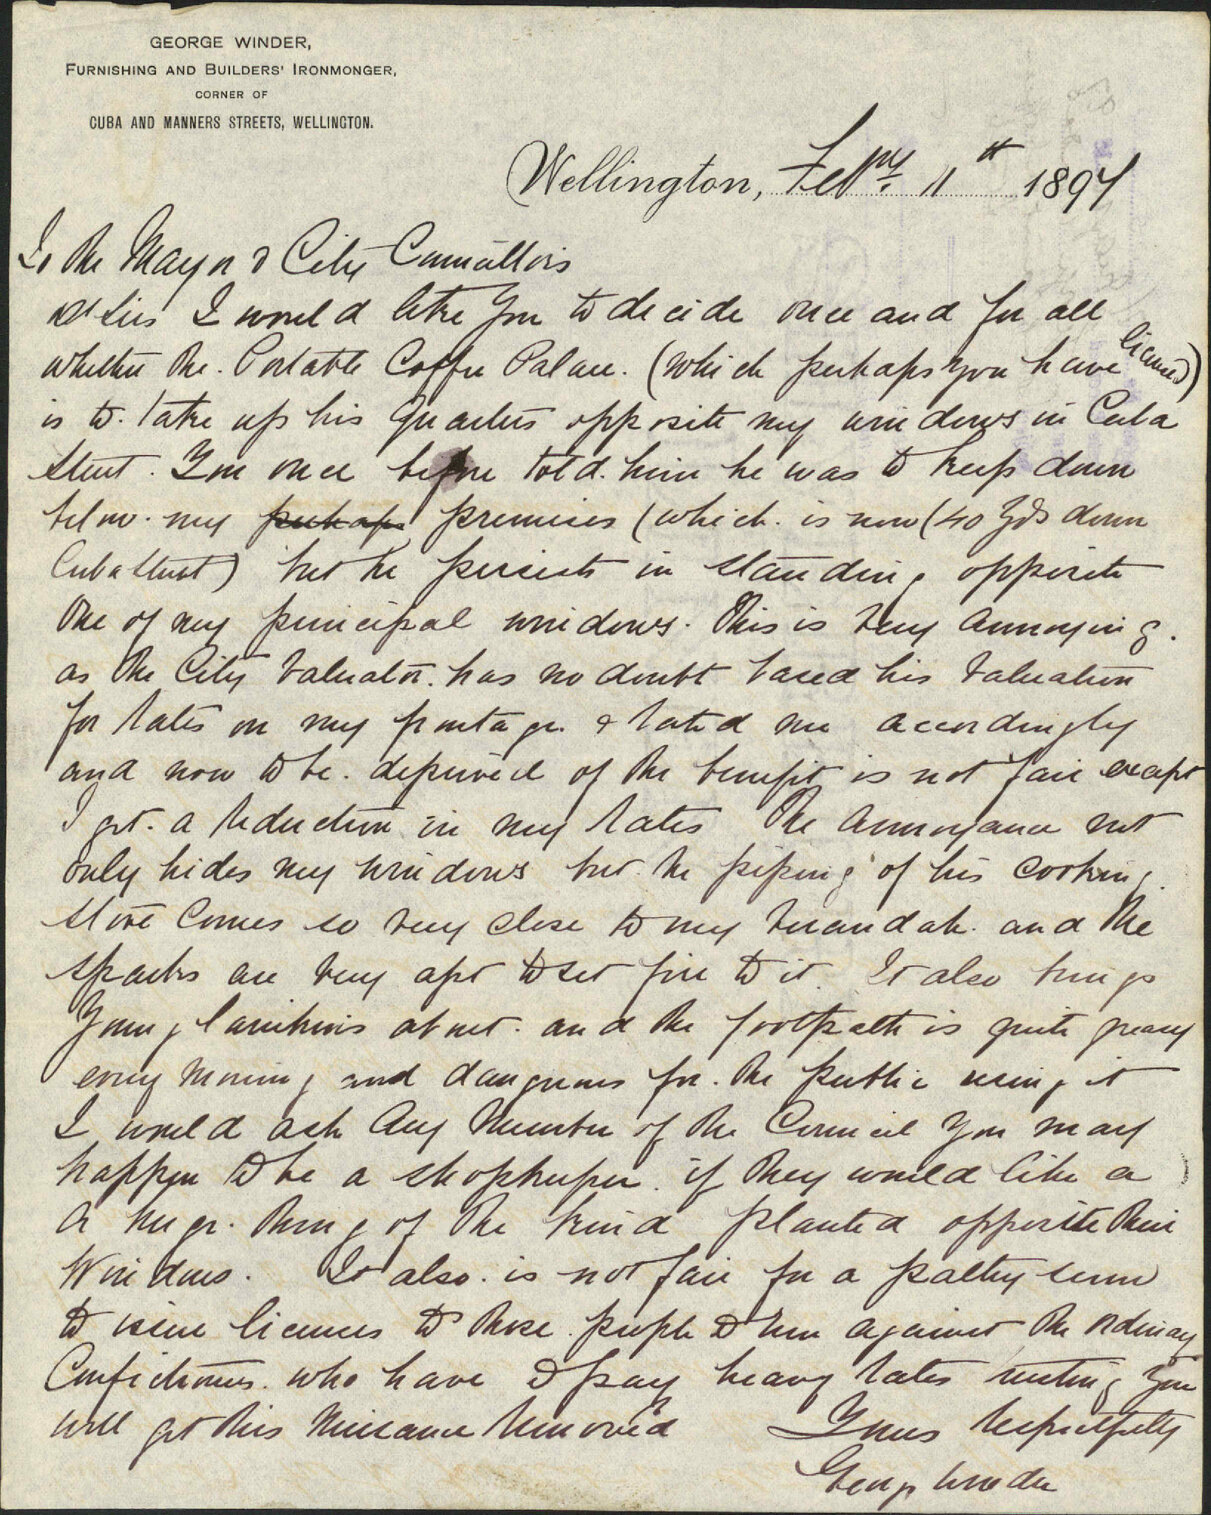 GEORGE WINDER,
FURNISHING AND BUILDERS' IRONMONGER,
CORNER OF
CUBA AND MANNERS STREETS, WELLINGTON.
Wellington, Febry. 11th 1897
To the Mayor & City Councillors
Sirs I would like you to decide once and for all
whether the Portable Coffee Palace. (which perhaps you have licensed)
is to take up his quarters opposite my windows in Cuba
Street. You once before told him he was to keep down
below my perhaps premises (which is now (40 yds down
Cuba Street) but he persists in standing opposite
one of my principal windows. This is very annoying.
as the City Valuator has no doubt based his valuation
for rates on my frontage & rated me accordingly
and now to be deprived of the benefit is not fair except
I get a reduction in my rates The annoyance not
only hides my windows but the piping of his cooking
stove comes so very close to my verandah and the
sparks are very apt to set fire to it. It also brings
Young larrikins about and the footpath is quite greasy
every morning and dangerous for the public using it
I would ask any member of the Council you may
happen to be a shopkeeper if they would like a
a huge thing of the kind planted opposite their
Windows. It also is not fair for a paltry sum
to issue licences to those people to run against the ordinary
Confectioners who have to pay heavy rates trusting you
will get this nuisance removed Yours respectfully
George Winder